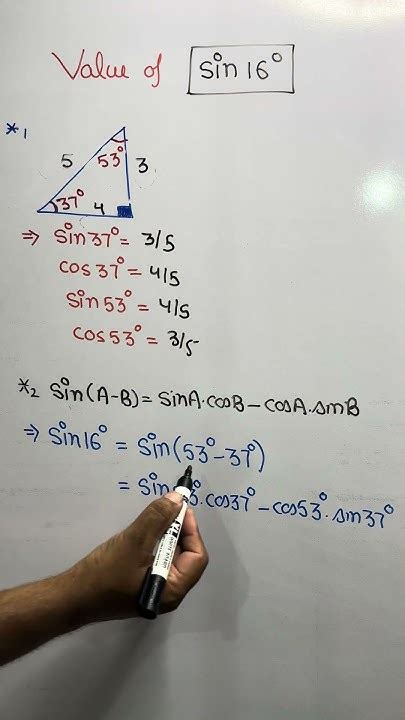 Value of sin 16°
*1
5 53° 3
37° 4
⇒ sin 37° = 3/5
cos 37° = 4/5
sin 53° = 4/5
cos 53° = 3/5
*2 sin(A-B) = sinA·cosB - cosA·sinB
⇒ sin 16° = sin(53° - 37°)
= sin 3°·cos37° - cos53°·sin37°